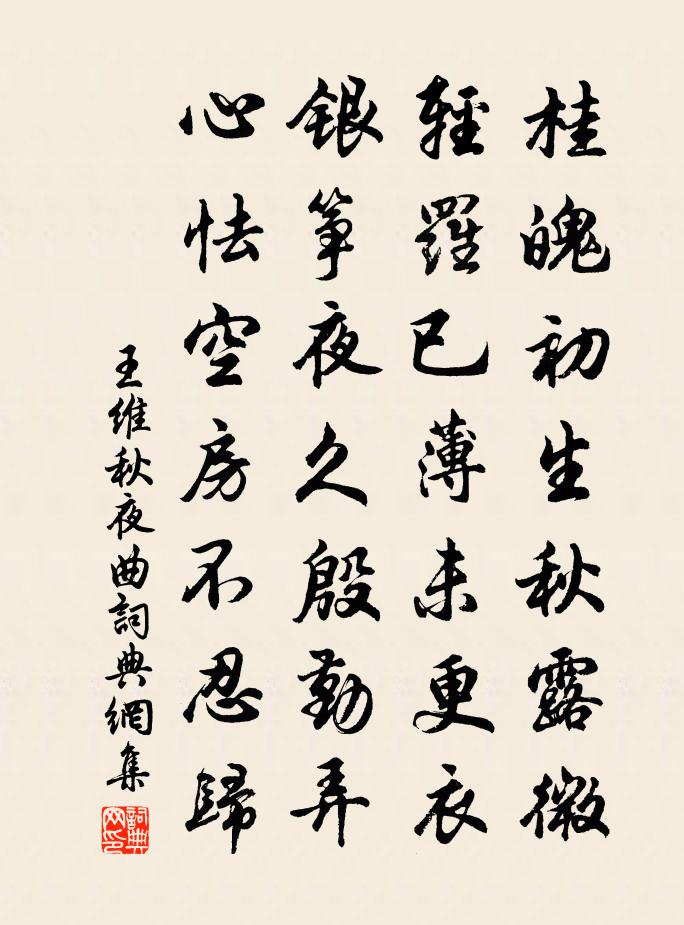 桂魄初生秋露微
輕羅已薄未更衣
銀箏夜久殷勤弄
心怯空房不忍歸
王維秋夜曲詞典網集
詞典網印